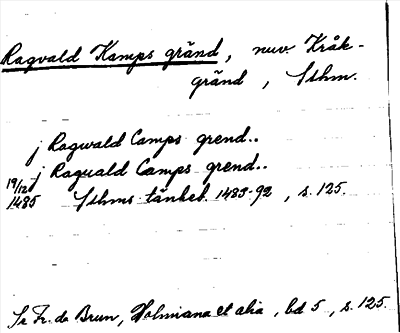 Ragvald Kamps gränd, nuv. Kråk-
gränd, Sthm.
j Ragwald Camps grend..
j Raguald Camps grend..
19/12 1485 Sthms tänkeb. 1483-92, s. 125.
Se Fr. de Brun, Holmiana et alia, bd 5, s. 125.